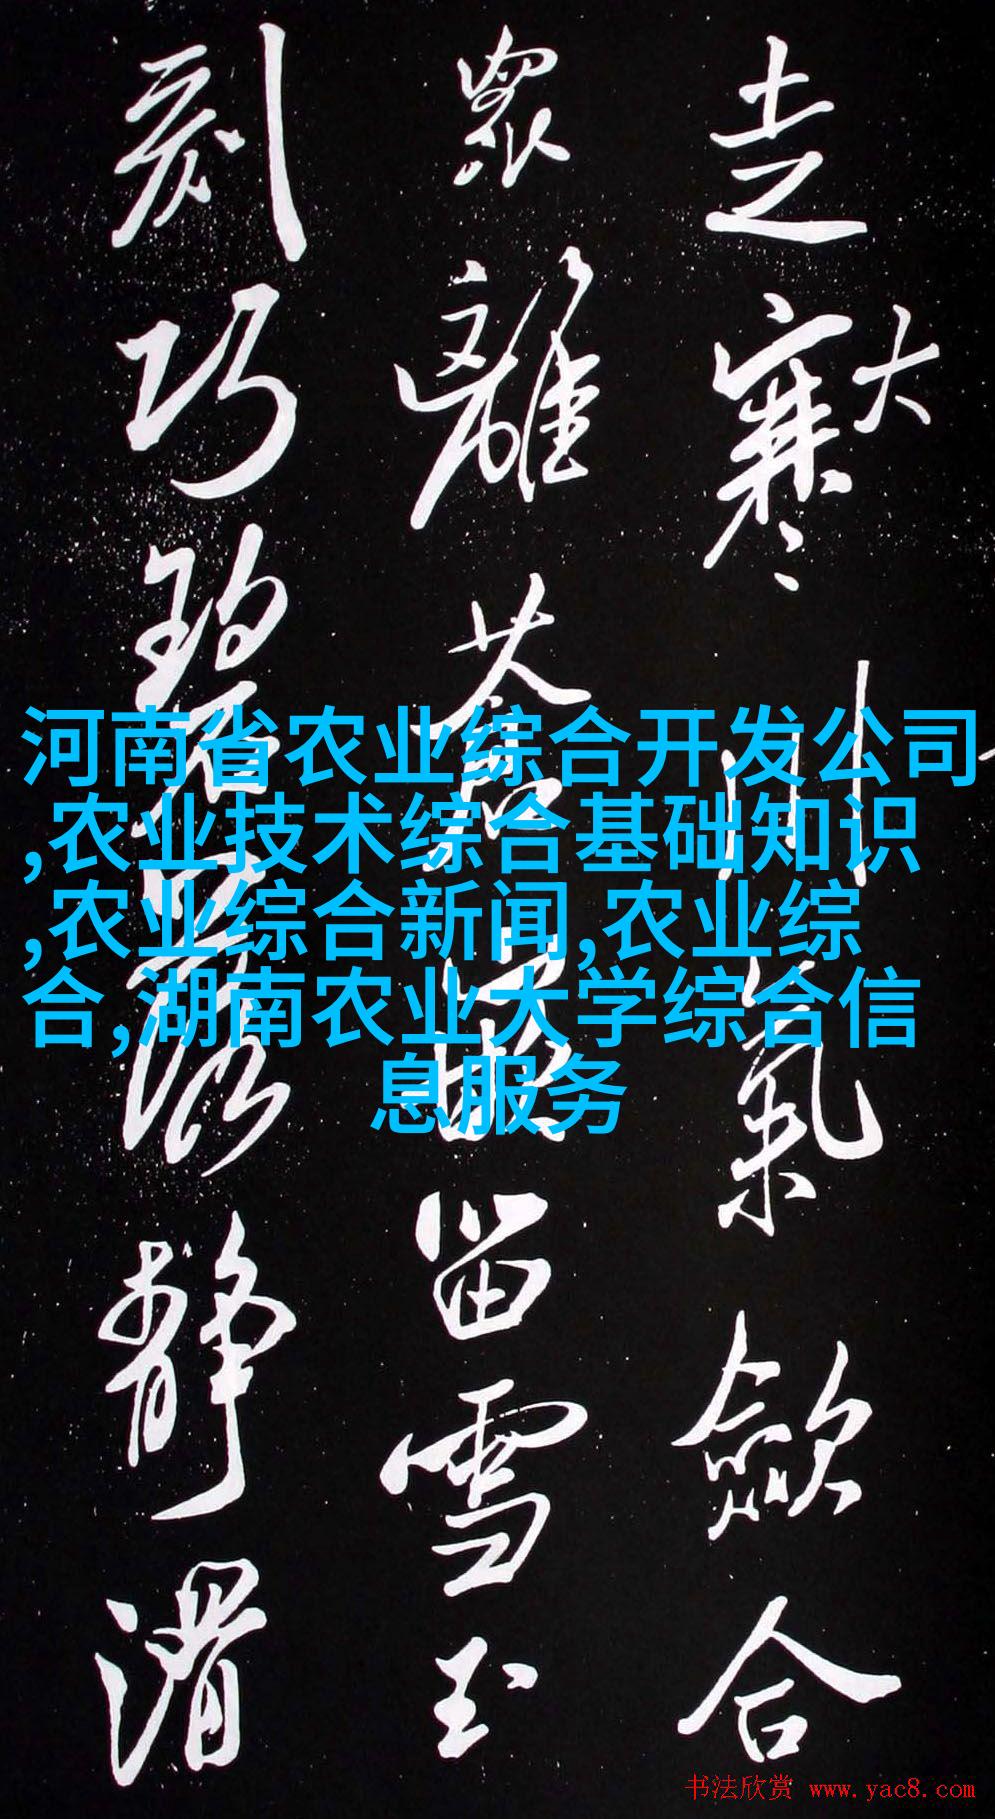 走寒大川氣歛合
衆離留雪玉
刻巧靜滑
河南省农业综合开发公司
,农业技术综合基础知识
,农业综合新闻,农业综
合,湖南农业大学综合信
息服务
书法欣赏 www.yac8.com